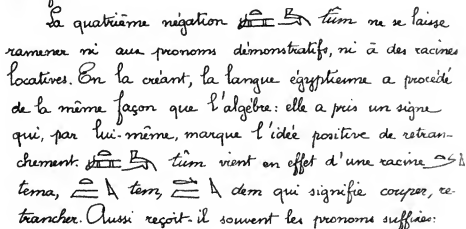 La quatrième négation tûm ne se laisse
ramener ni aux pronoms démonstratifs, ni à des racines
locatives. En la créant, la langue égyptienne a procédé
de la même façon que l'algèbre: elle a pris un signe
qui, par lui-même, marque l'idée positive de retran-
chement. tûm vient en effet d'une racine
tema, tem, dem qui signifie couper, re-
trancher. Aussi reçoit-il souvent les pronoms suffixes: